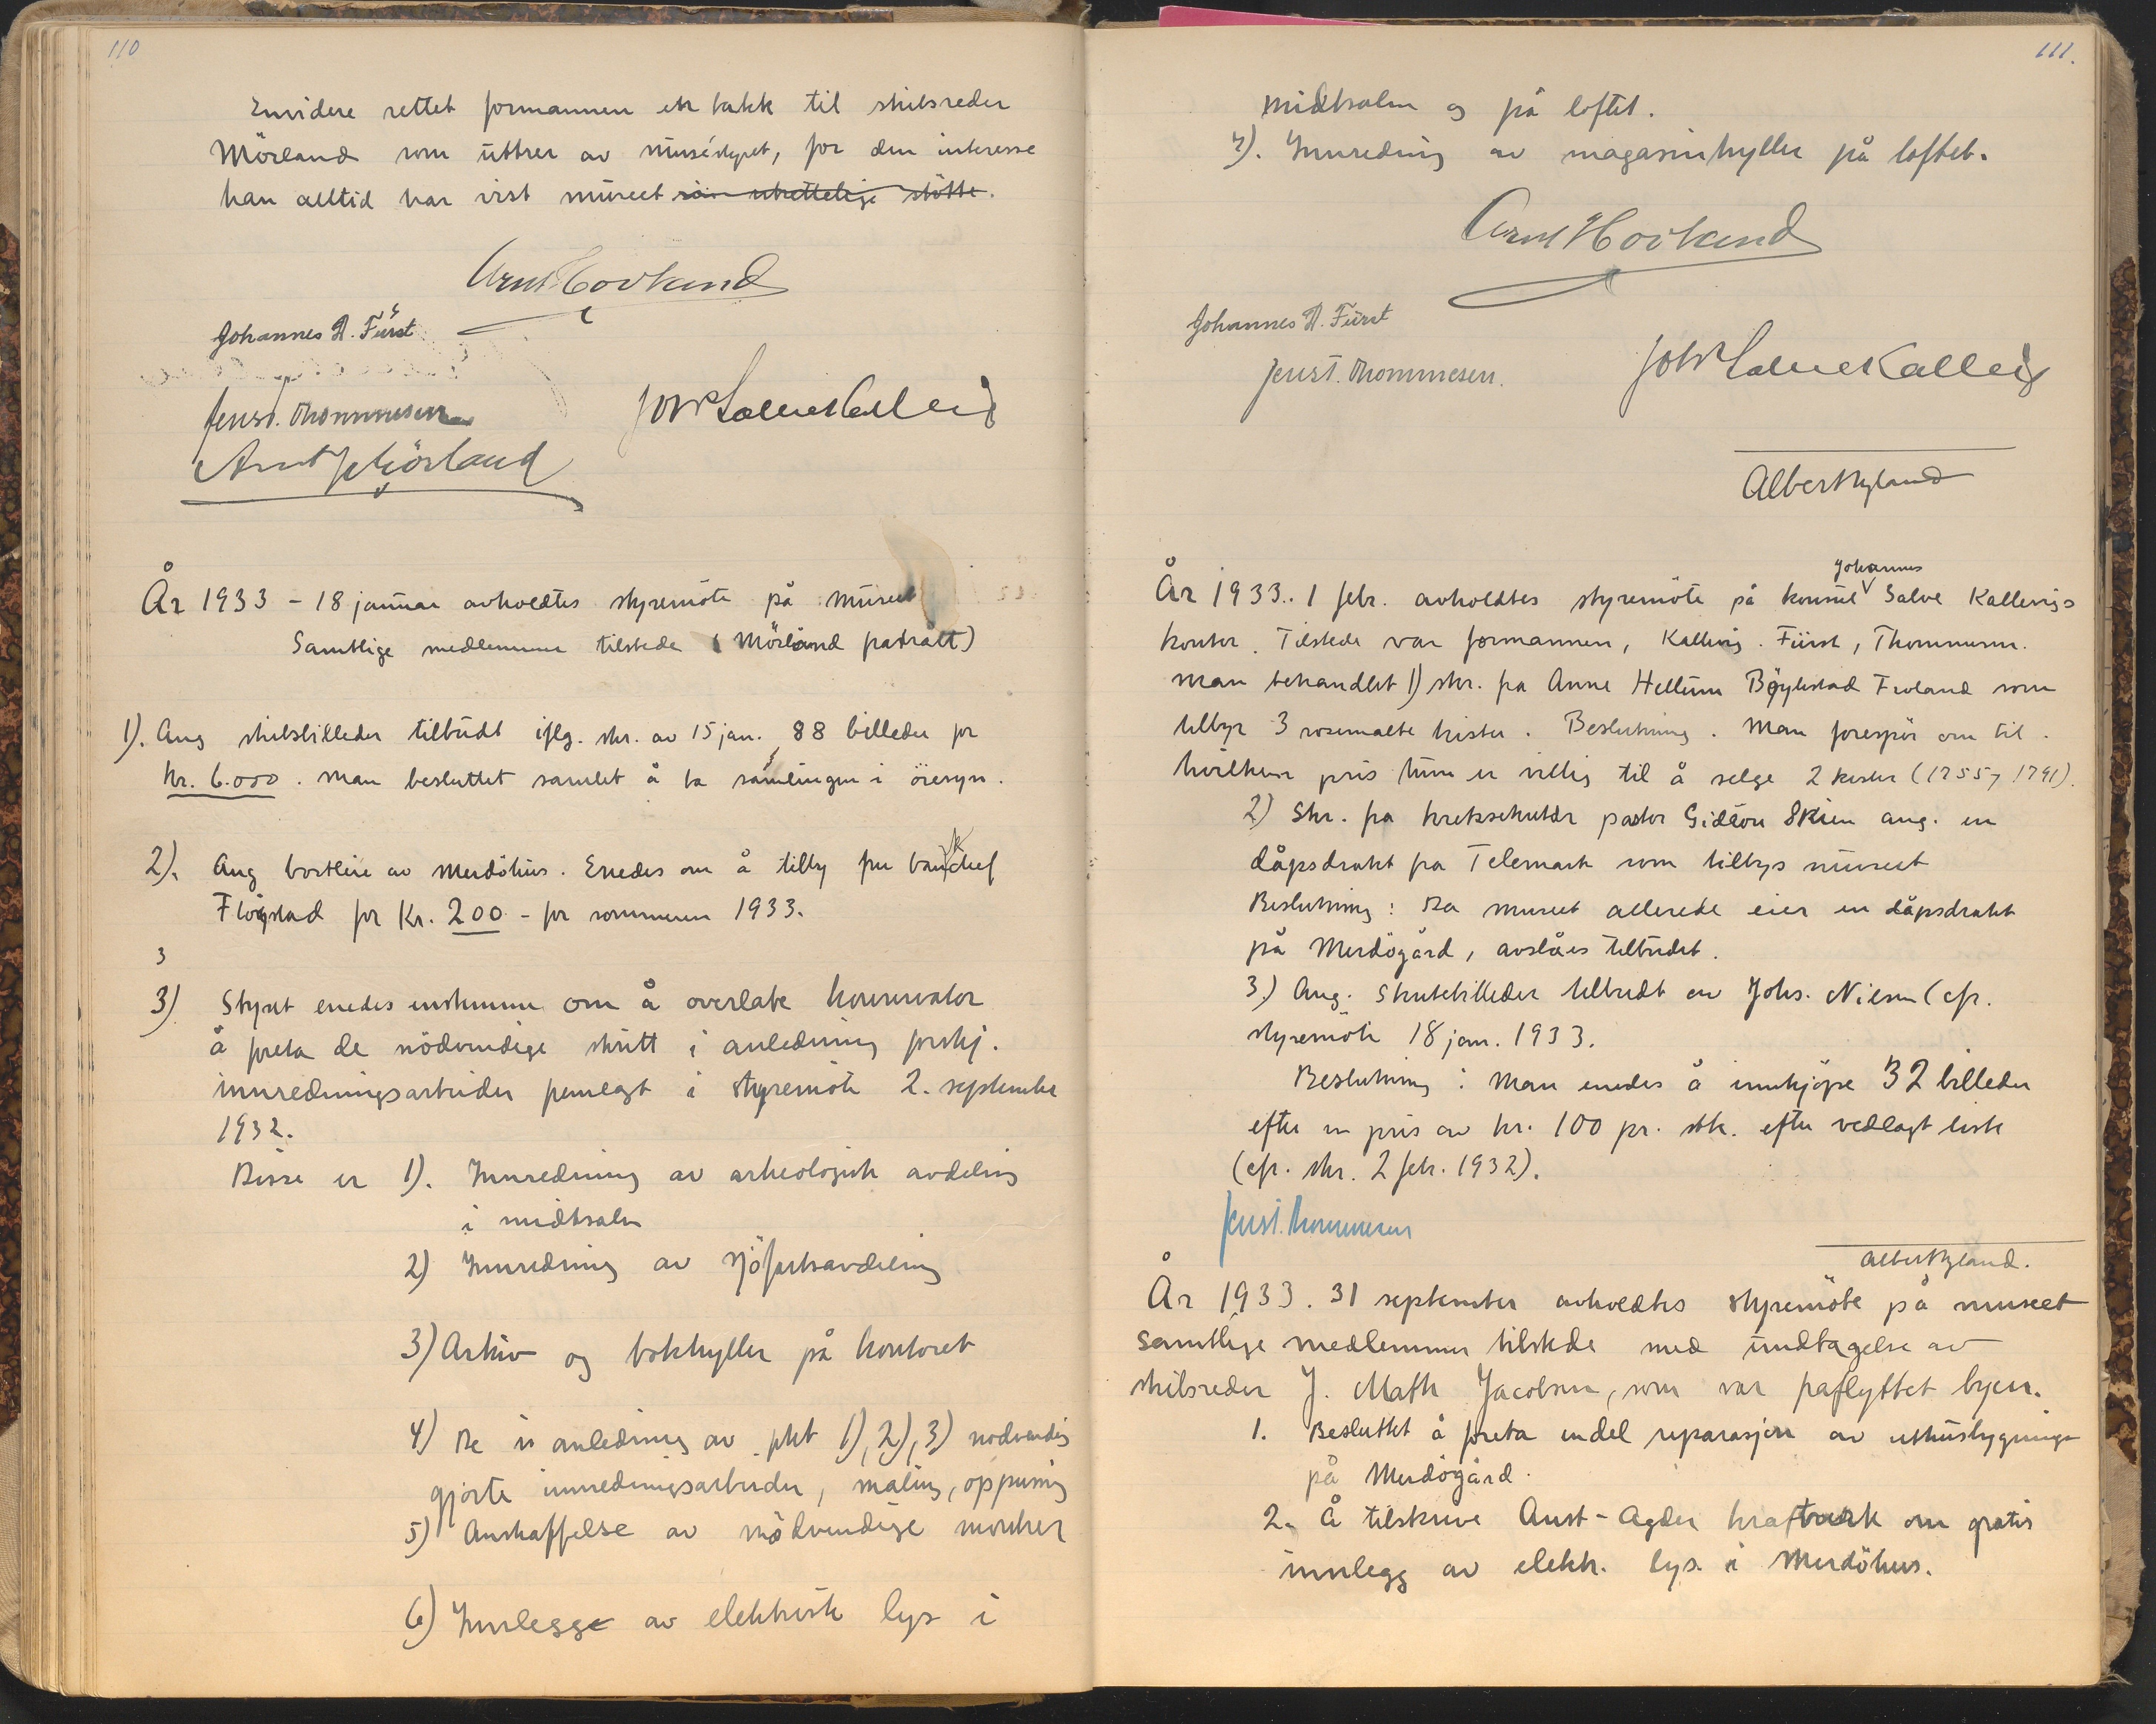 110
Envidere rettet formannen en takk til skibsreder
Mörland som uttrer av muséstyret, for den interesse
han alltid har vist museet som utrettelige stötte.
Arnt Hovland
Johannes D. Fürst
Jens T. Thommesen
Joh Salve Kallevig
Arnt J Mörland
År 1933 - 18 januar avholdtes styremöte på museet
Samtlige medlemmer tilstede (Mörland fratrått)
1). Ang skibsbilleder tilbudt iflg. skr. av 15 jan. 88 billeder for
kr. 6.000. Man besluttet samlet å ta samlingen i öiesyn.
2). Ang bortleie av Merdöhus. Enedes om å tilby fru bankchef
Flöystad for Kr. 200 - for sommeren 1933.
3
3) Styret enedes enstemmi om å overlate konservator
å foreta de nödvendige skritt i anledning forskj.
innredningsarbeider fremlagt i styremöte 2. september
1932.
Disse er 1). Innredning av arkeologisk avdeling
i midtsalen
2) Innredning av sjöfartsavdeling
3) Arkiv og bokhyller på kontoret
4) De i anledning av pkt 1), 2), 3) nodvendig
gjorte innredningsarbeider, maling, oppussing
5) Anskaffelse av nödvendige montrer
6) Innlegge av elektrisk lys i
111.
midtsalen og på loftet.
7). Innredning av magasinhyller på loftet.
Arnt Hovland
Johannes D. Fürst
Jens T. Thommesen.
Joh Salve Kallevig
Albert Nyland
År 1933. 1 febr. avholdtes styremöte på konsul Johannes Salve Kallevigs
kontor. Tilstede var formannen, Kallevig. Fürst, Thommesen.
Man behandlet 1) skr. fra Anne Hellum Böylestad Froland som
tilbyr 3 rosemalte kister. Beslutning. Man forespör om til
hvilken pris hun er villig til å selge 2 kister (1755, 1791).
2) Skr. fra pastor Gideon Skien ang. en
dåpsdrakt fra Telemark som tilbys museet
Beslutning: Da museet allerede eier en dåpsdrakt
på Merdögård, avslåes tilbudet.
3.) Ang. Skutebilleder tilbudt av Johs. Nilsen (cfr.
styremöte 18 jan. 1933.
Beslutning: Man enedes å innkjöpe 32 billeder
efter en pris av kr. 100 pr. stk. efter vedlagt liste
(cfr. skr. 2 febr. 1932).
Jens T. Thommesen
Albert Nyland.
År 1933. 31 september avholdtes styremöte på museet
Samtlige medlemmer tilstede med undtagelse av
skibsreder J. Math Jacobsen, som var fraflyttet byen.
1. Besluttet å foreta endel reparasjon av uthusbygninge
på Merdögård.
2. Å tilskrive Aust-Agder kraftverk om gratis
innlegg av elektr. lys i Merdöhus.